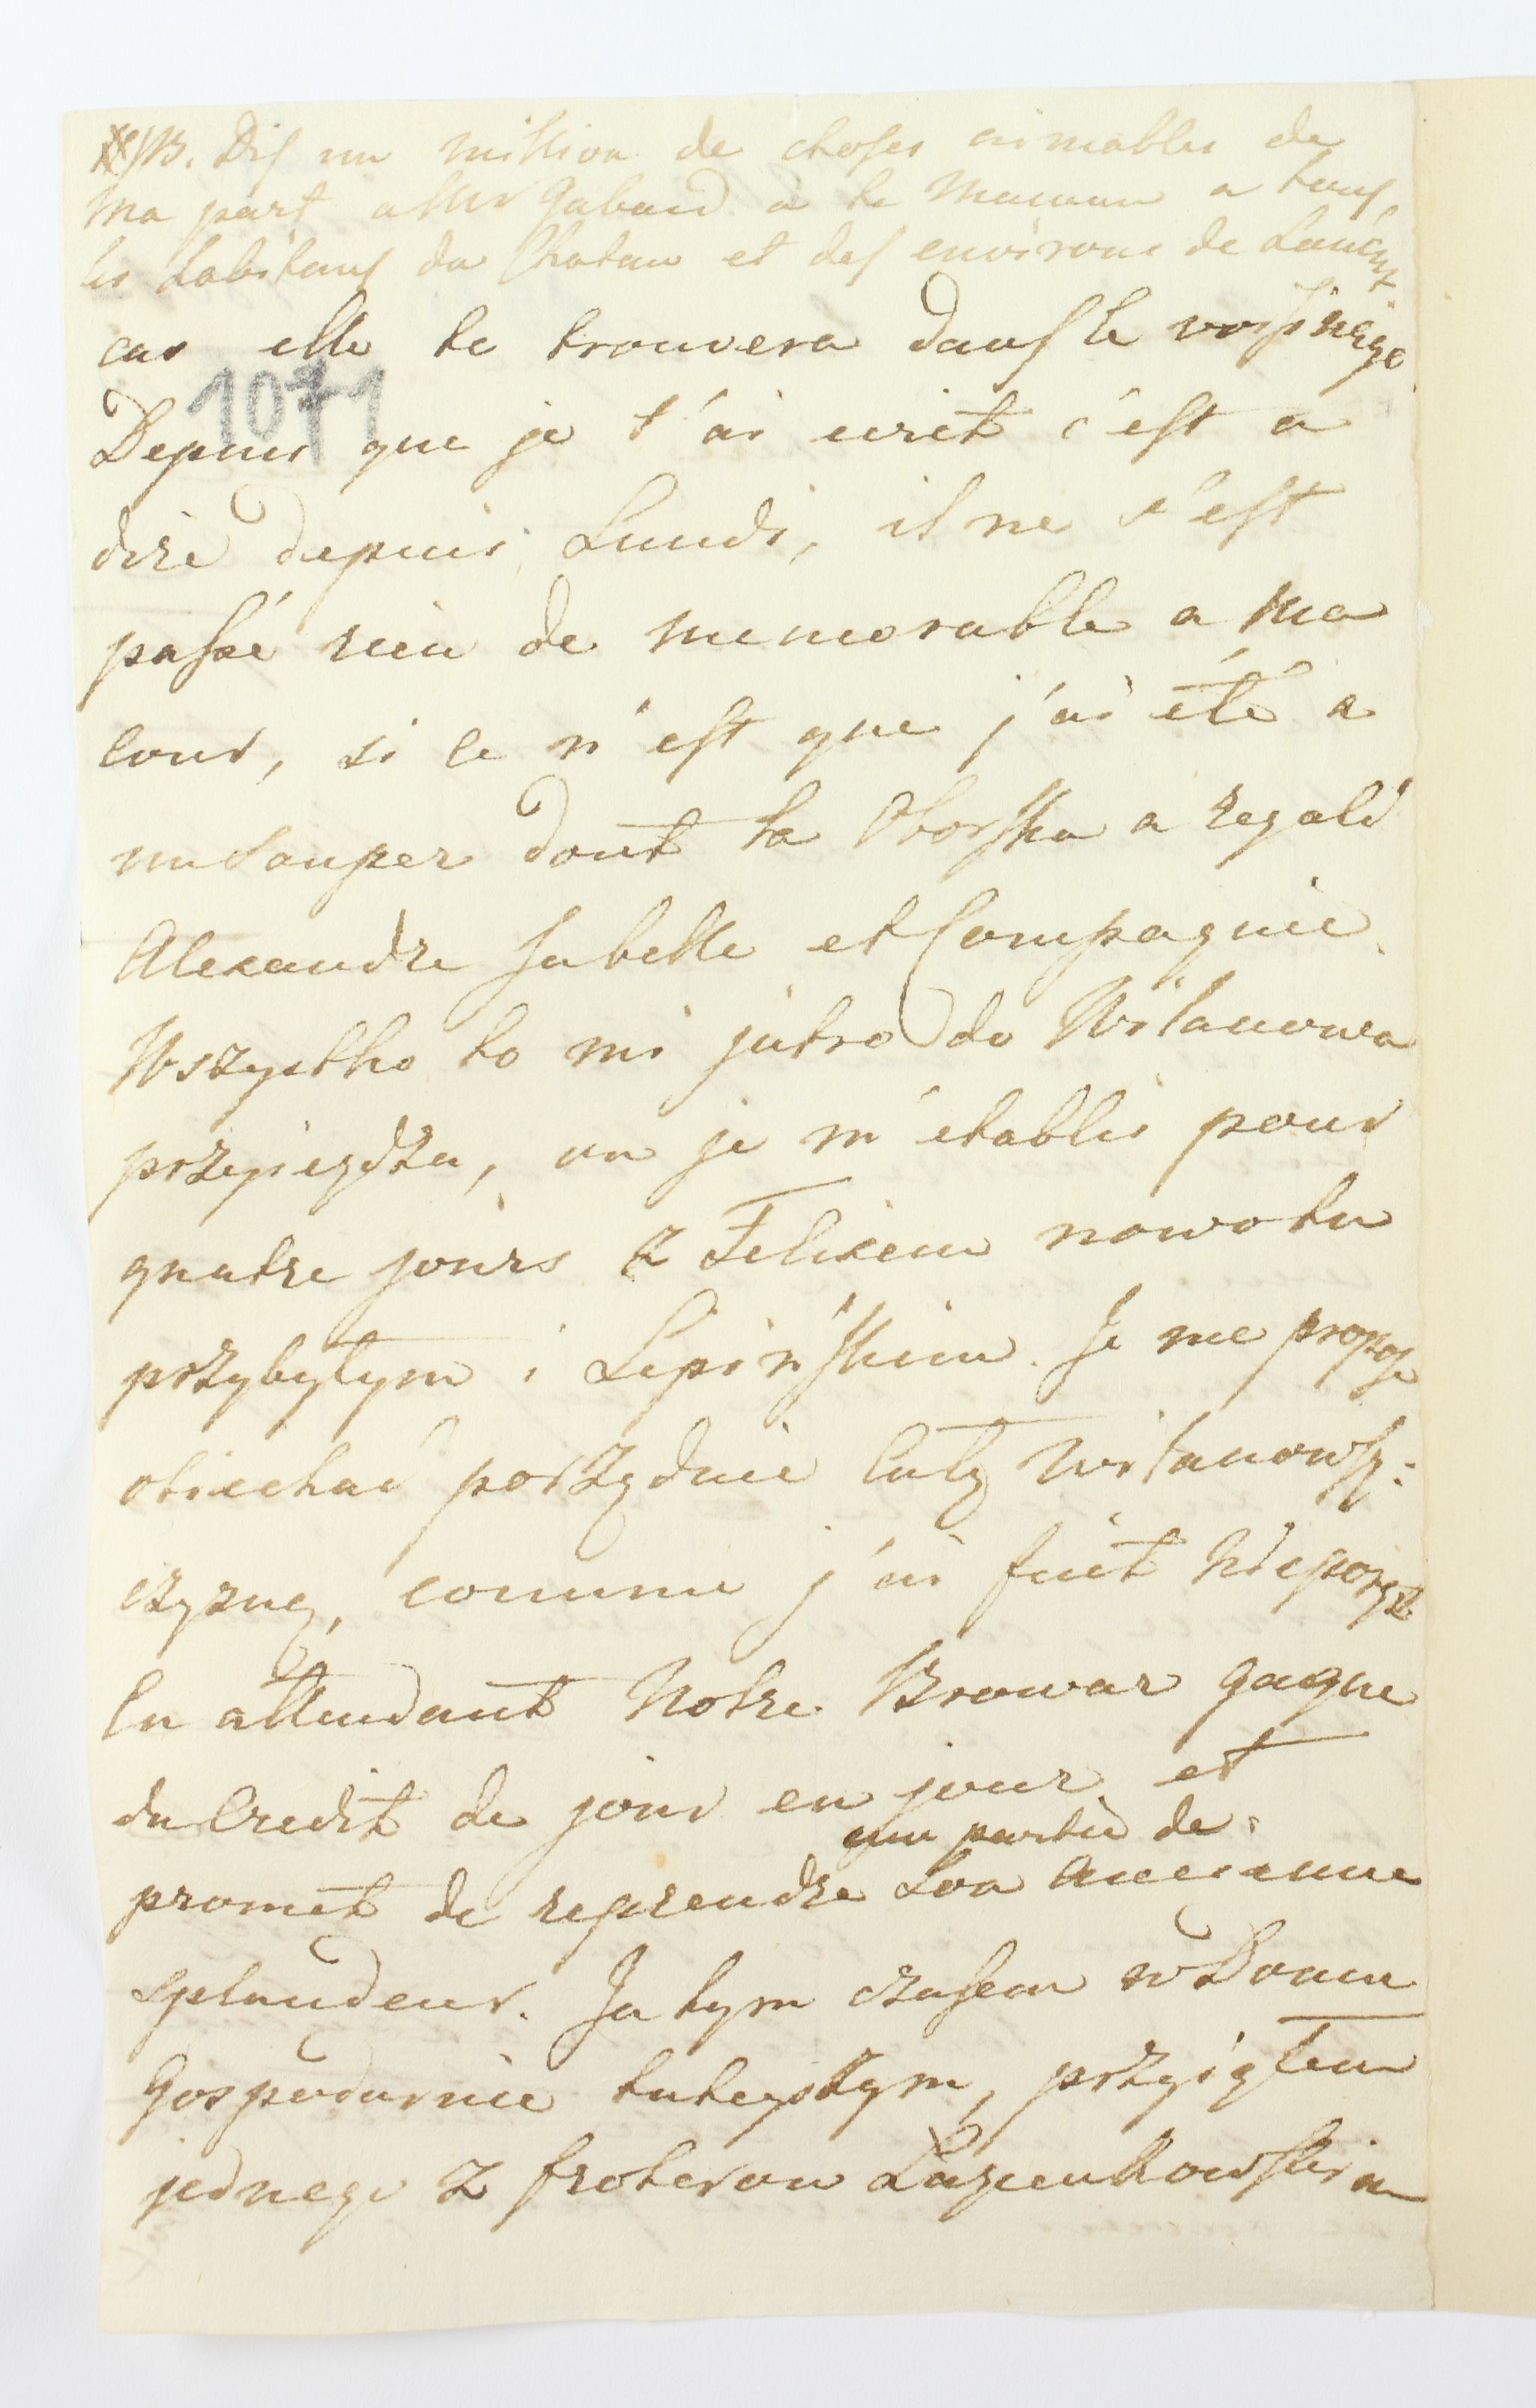 NB. Dis un million de choses aimables de
ma part a Mlle Gabaud a ta Maman a tous
les habitans du Chateau et des environs de Lancut.
cas elle te trouvera dans le voisinage
1071
Depuis que je t'ai ecrit c'est a
dire depuis Lundi, il ne s'est
passé rien de memorable a ma
cour, si ce n'est que j'ai été a
un Souper dont la Oborska a regalé
Alexandre Isabelle et Compagnie.
Wszystko to mi jutro do Wilanowa
przyiezdża, ou je m'etablis pour
quatre jours z Felixem nowotu
przybyłym i Lipińskim. Je me propose
obiechać porządnie całą Wilanowsz:
czyznę, comme j'ai fait Nieporęt.
En attendant Notre Browar gagne
du Credit de jour en jour et
une partie de
promet de reprendre son ancienne
splendeur. Ja tym czasem w Domu
Gospodarnie tuteyszym, przyiąłem
jednego z froterow Łazienkowskich